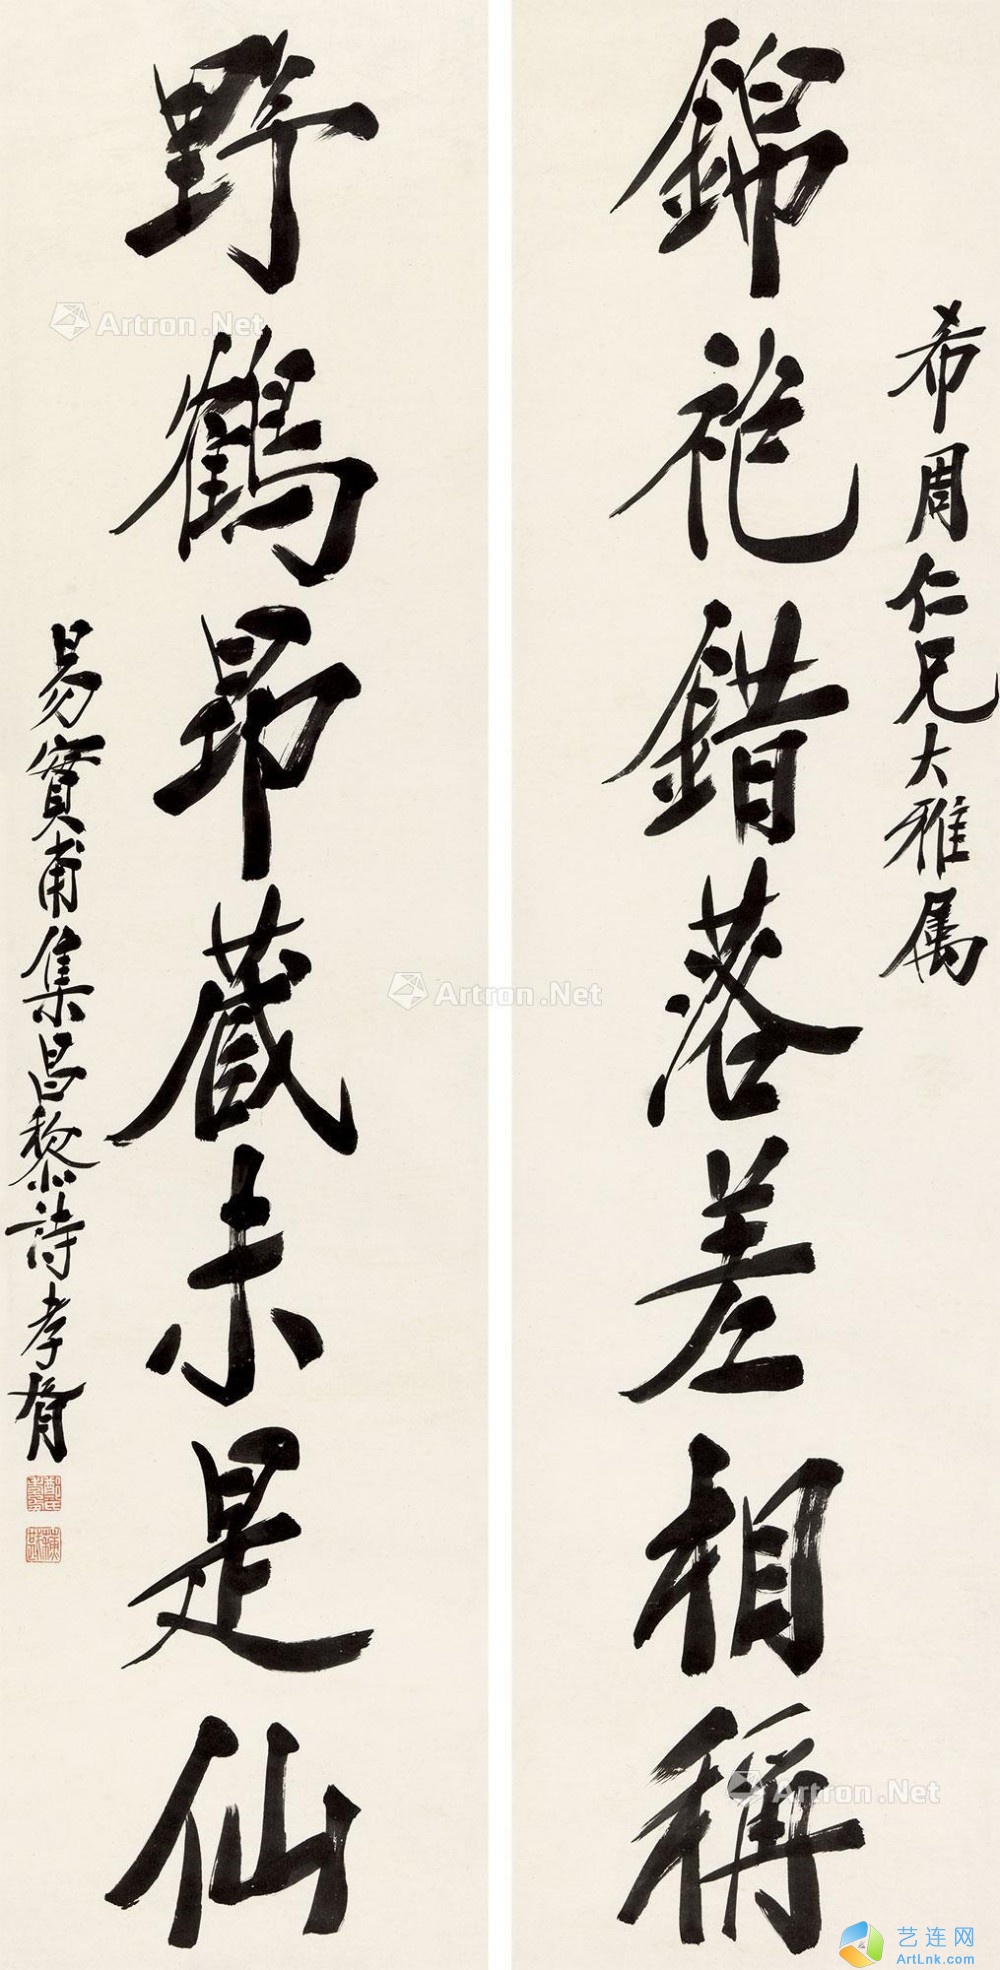 希周仁兄大雅属
錦袍錯落差相稱
野鶴昂藏未是仙
易實甫集昌黎詩孝胥
Artron.Net
Artron.Net
Artron.Net
艺连网
ArtLnk.com